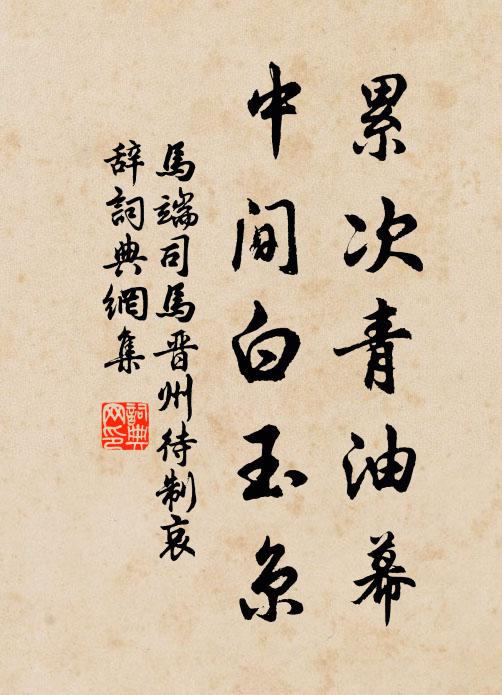 累次青油幕
中間白玉京
馬端司馬晋州待制哀
辞詞典網集
詞典网印